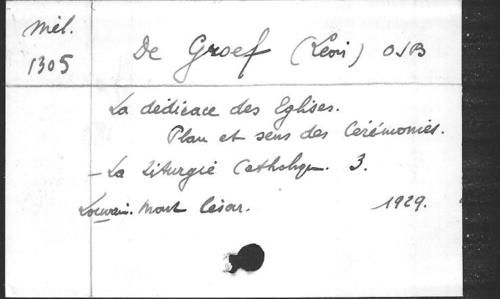 Mél.
1305
De Groef (Léon) OSB
La dédicace des Eglises.
Plan et sens des Cérémonies.
- La Liturgie Catholique. 3.
Louvain. Mont César. 1929.